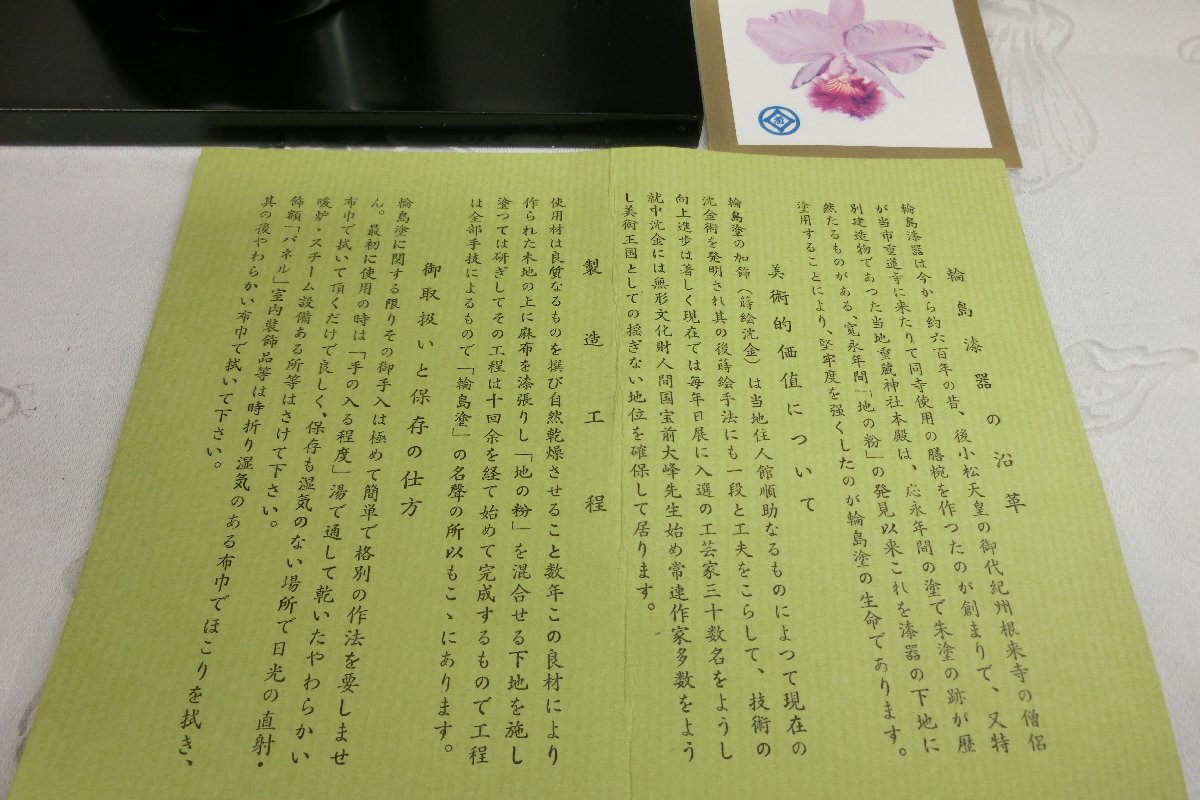 輪島漆器の沿革
輪島漆器は今から約六百年の昔、後小松天皇の御代紀州根来寺の僧侶
が当市重蓮寺に来たりて同寺使用の膳椀を作つたのが創まりで、又特
別建造物であった当地重蔵神社本殿は、応永年間の塗で朱塗の跡が歴
然たるものがある、寛永年間「地の粉」の発見以来これを漆器の下地に
塗用することにより、堅牢度を強くしたのが輪島塗の生命であります。
美術的価値について
輪島塗の加飾(蒔絵沈金)は当地住人館順助なるものによつて現在の
沈金術を発明され其の後蒔絵手法にも一段と工夫をこらして、技術の
向上進歩は著しく現在では毎年日展に入選の工芸家三十数名をようし
就中沈金には無形文化財人間国宝前大峰先生始め常連作家多数をよう
し美術王国としての揺ぎない地位を確保して居ります。
製造工程
使用材は良質なるものを撰び自然乾燥させること数年この良材により
作られた木地の上に麻布を漆張りし「地の粉」を混合せる下地を施し
塗つては研ぎしてその工程は十回余を経て始めて完成するもので工程
は全部手技によるもので「輪島塗」の名聲の所以もこゝにあります。
御取扱いと保存の仕方
輪島塗に関する限りその御手入は極めて簡単で格別の作法を要しませ
ん。最初に使用の時は「手の入る程度」湯で通して乾いたやわらかい
布巾で拭いて頂くだけで良しく、保存も湿気のない場所で日光の直射・
暖炉・スチーム設備ある所等はさけて下さい。
飾額「パネル」室内装飾品等は時折り湿気のある布巾でほこりを拭き、
其の後やわらかい布巾で拭いて下さい。